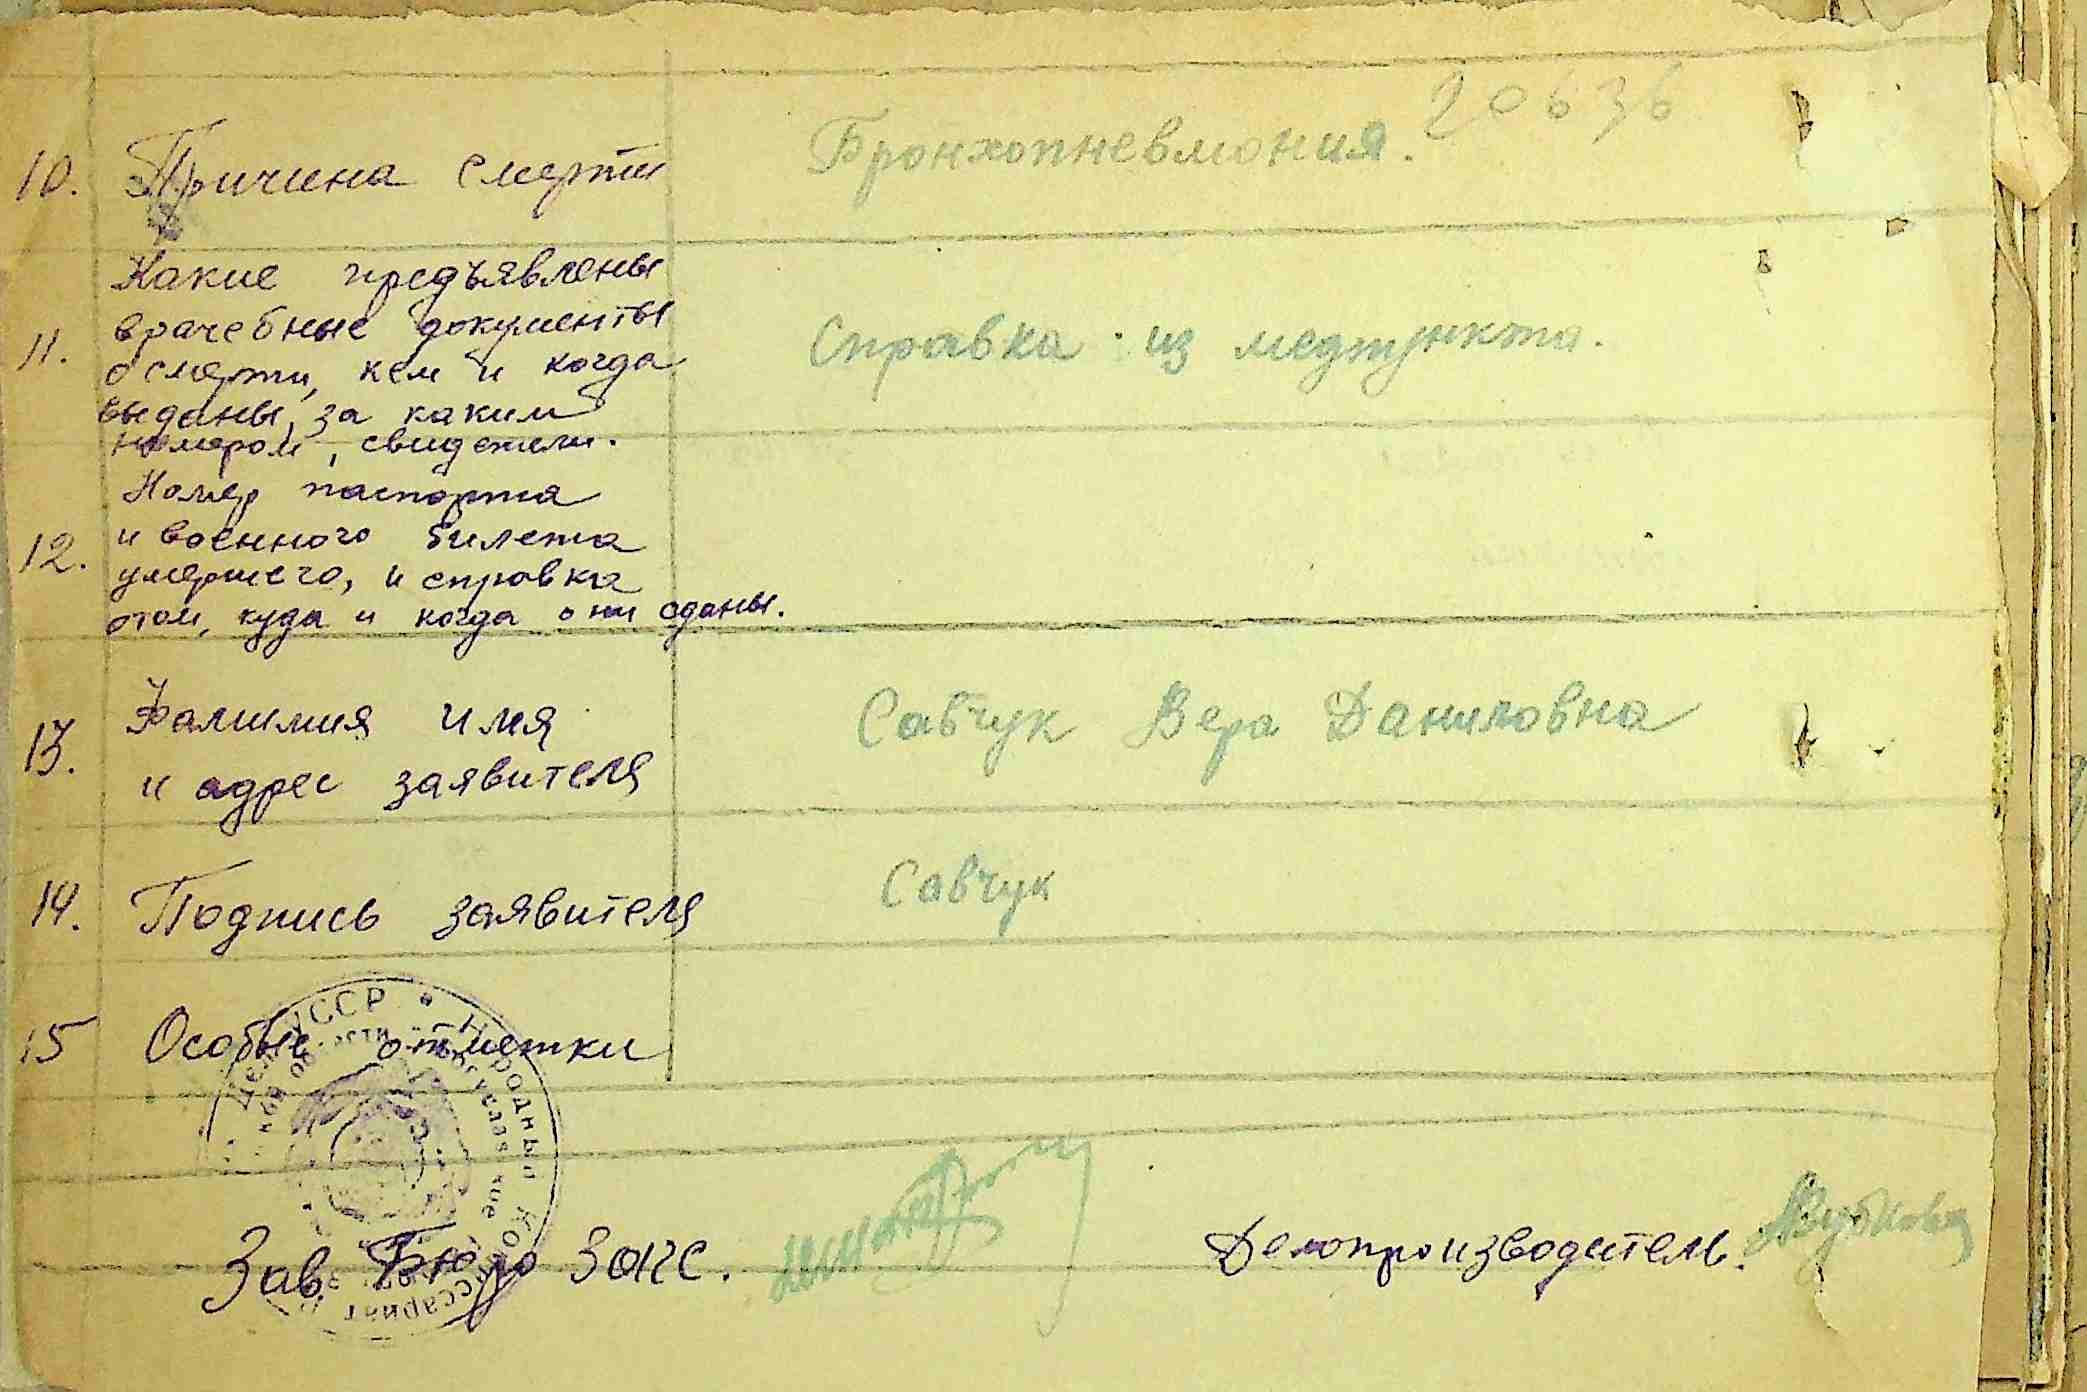 20636
10. Причина смерти Бронхопневмония.
Какие предъявлены
врачебные документы
11. о смерти, кем и когда Справка из медпункта.
выданы, за каким
номером, свидетели.
Номер паспорта
12. и военного билета
умершего, и справка
отом, куда и когда они сданы.
13. Фамилия имя Савчук Вера Даниловна
и адрес заявителя
14. Подпись заявителя Савчук
15 Особые отметки
УССР • Народный Комиссариат
Зав. Бюро Загс. Делопроизводитель.